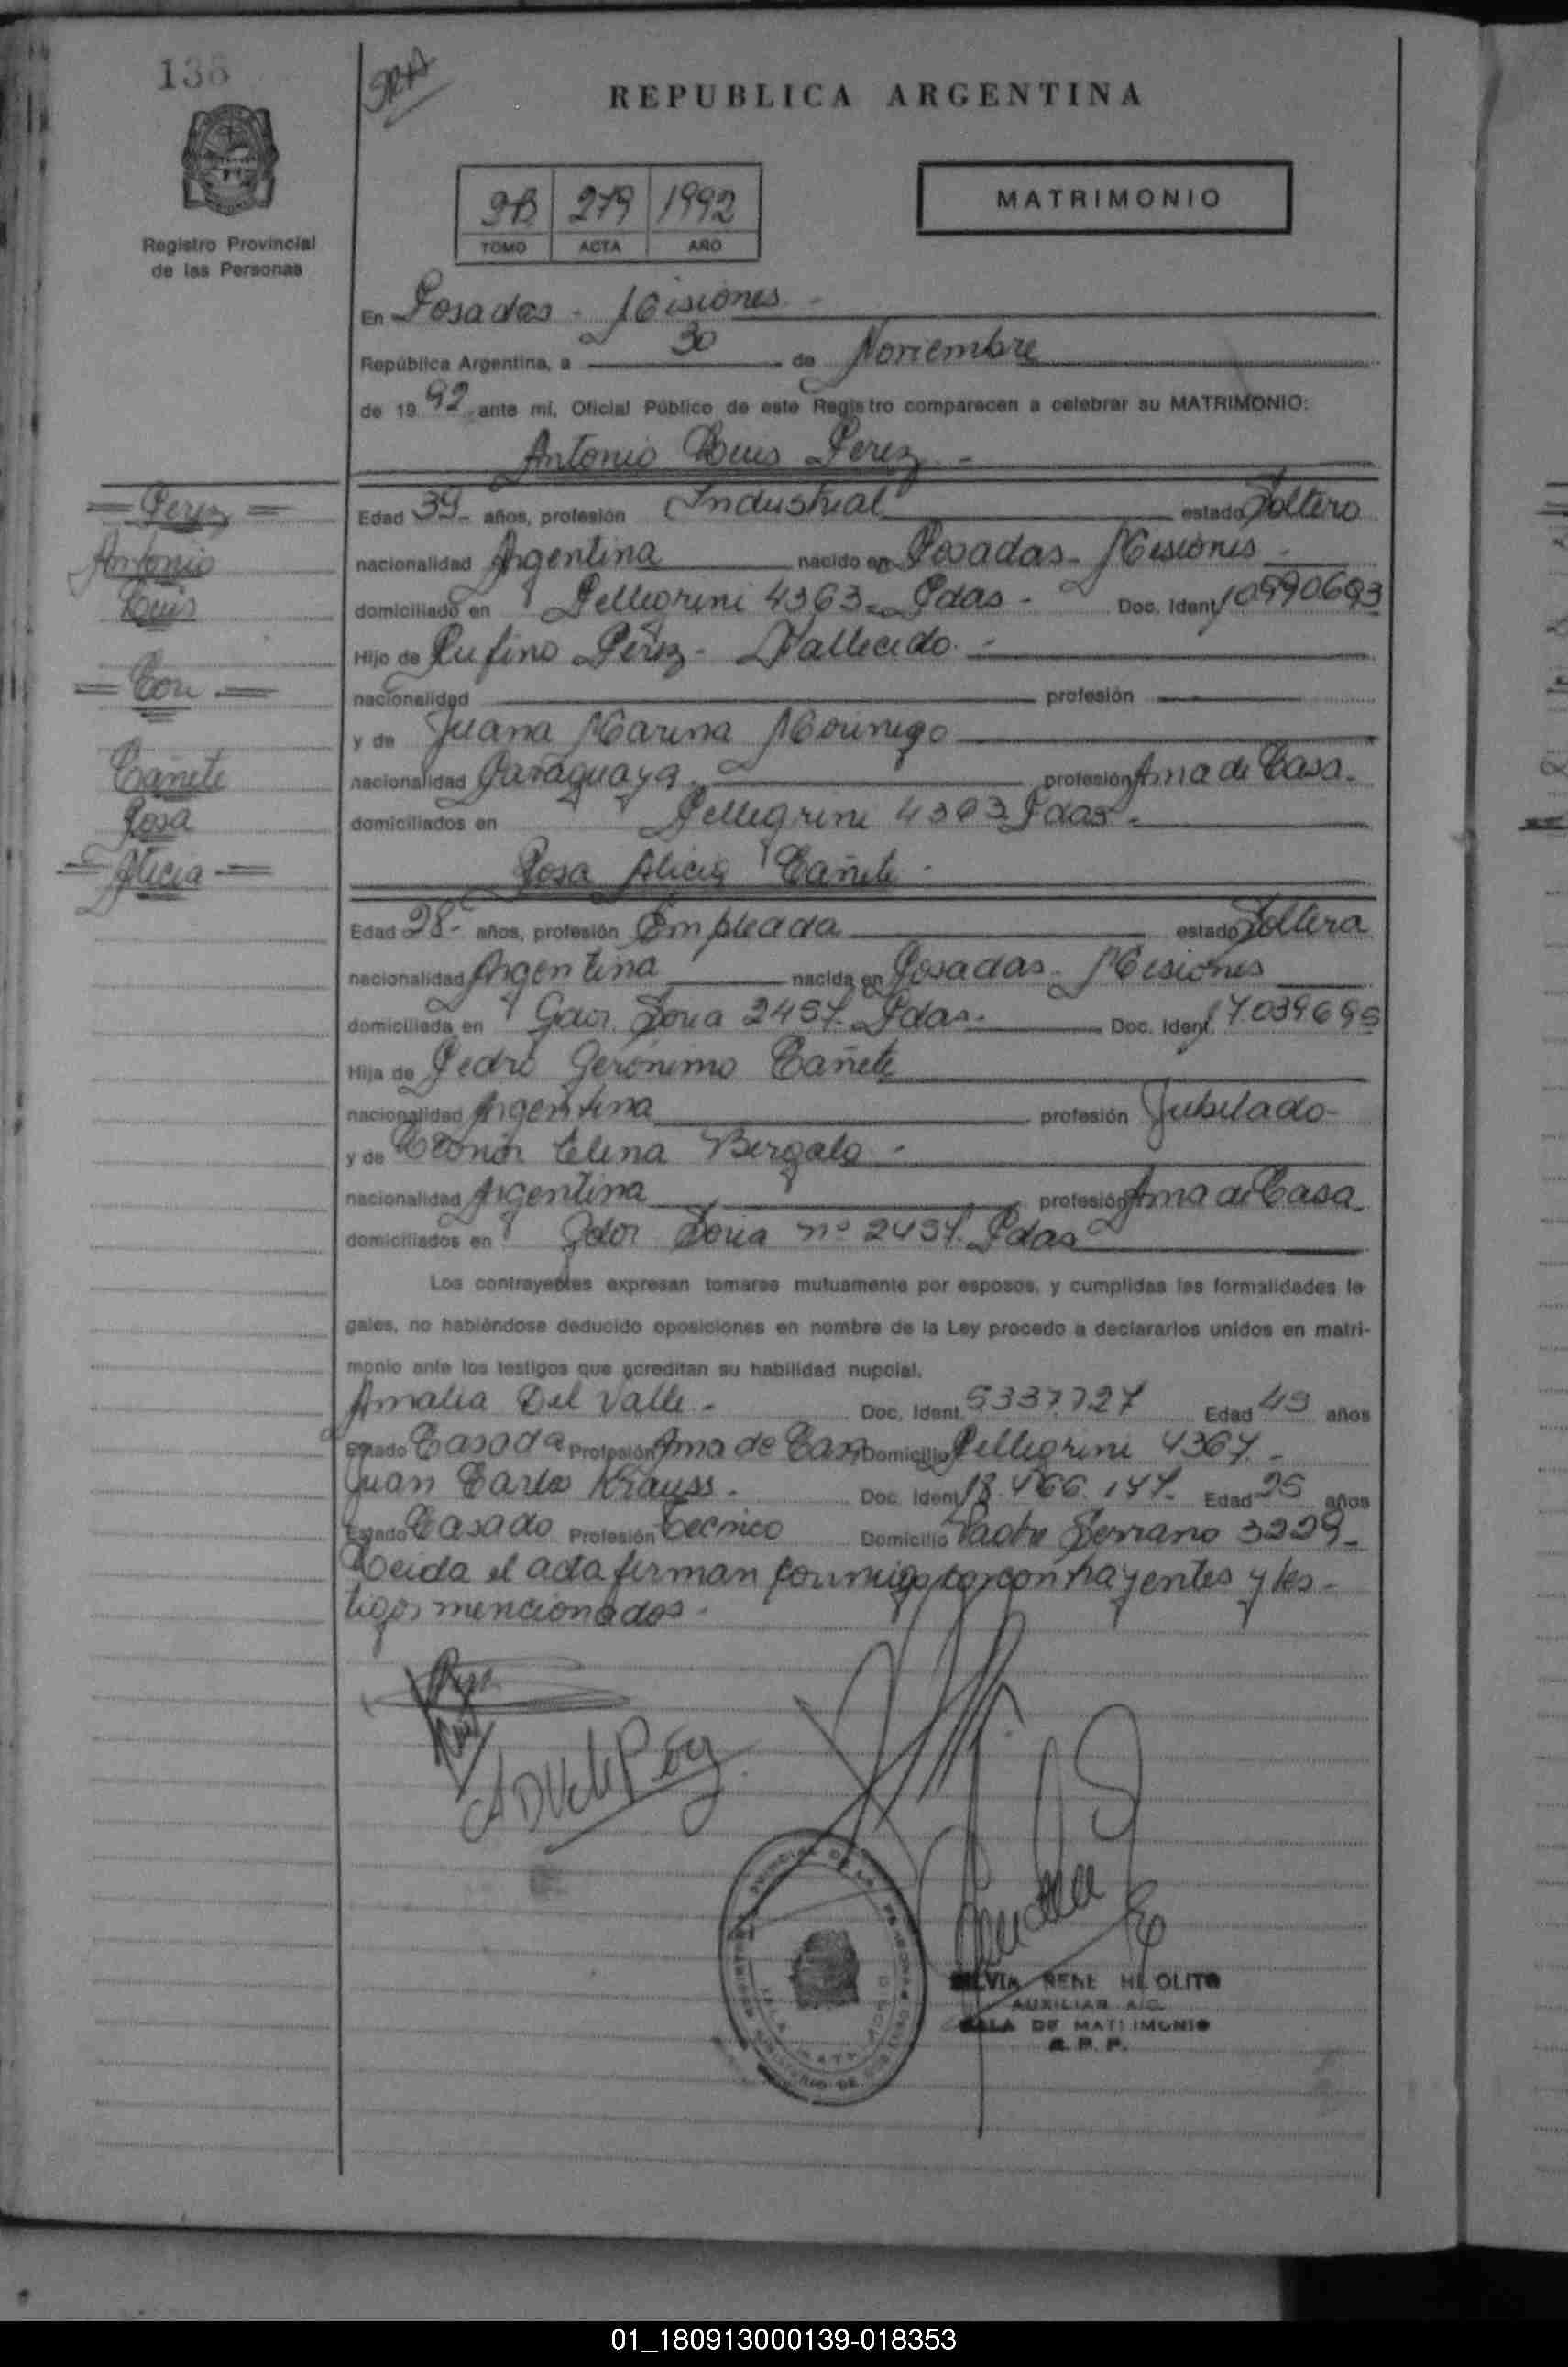 REPUBLICA ARGENTINA
Registro Provincial
de las Personas
279 1992
TOMO ACTA AÑO
MATRIMONIO
En Posadas - Misiones -
República Argentina, a 30 de Noviembre
de 1992 ante mí, Oficial Público de este Registro comparecen a celebrar su MATRIMONIO:
Antonio Luis Perez -
= Perez =
Antonio
Luis
= Con =
Cañete
Rosa
= Alicia =
Edad 39- años, profesión Industrial estado Soltero
nacionalidad Argentina nacido en Posadas - Misiones -
domiciliado en Pellegrini 4363 - Pdas - Doc. Ident. 10990693
Hijo de Rufino Pérez - Fallecido -
nacionalidad profesión
y de Juana Marina
nacionalidad Paraguaya - profesión Ama de Casa -
domiciliados en Pellegrini 4363 Pdas -
Rosa Alicia Cañete -
Edad 28- años, profesión Empleada estado Soltera
nacionalidad Argentina nacida en Posadas - Misiones
domiciliada en Soria 2457 - Pdas - Doc. Ident.
Hija de Pedro Gerónimo Cañete
nacionalidad Argentina profesión Jubilado -
y de Celina
nacionalidad Argentina profesión Ama de Casa -
domiciliados en Gdor Soria nº 2457 - Pdas
Los contrayentes expresan tomarse mutuamente por esposos, y cumplidas las formalidades le-
gales, no habiéndose deducido oposiciones en nombre de la Ley procedo a declararlos unidos en matri-
monio ante los testigos que acreditan su habilidad nupcial.
Amalia Del Valle - Doc. Ident. 5337727 Edad años
Estado Casada Profesión Ama de Casa Domicilio Pellegrini 4367 -
Juan Carlos Krauss - Doc. Ident. 18.466.147 - Edad 25 años
Estado Casado Profesión Tecnico Domicilio Padre Serrano 3229 -
Leida el acta firman conmigo los contrayentes y tes-
tigos mencionados -
AUXILIAR
SALA DE MATRIMONIO
R. P. P.
01_180913000139-018353